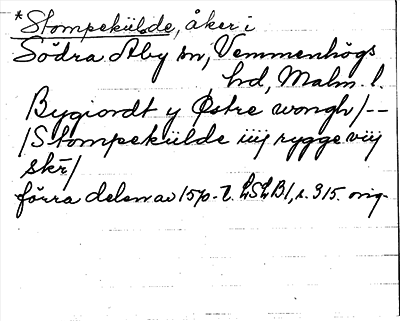 *Stompekülde, åker i
Södra Åby sn, Vemmenhögs
hd, Malm. l.
Bygiordt y Østre wongh /--
/Stompekülde iiij rygge viij
skr̄/
förra delen av 1570-t. LSLB1, s. 315. orig.